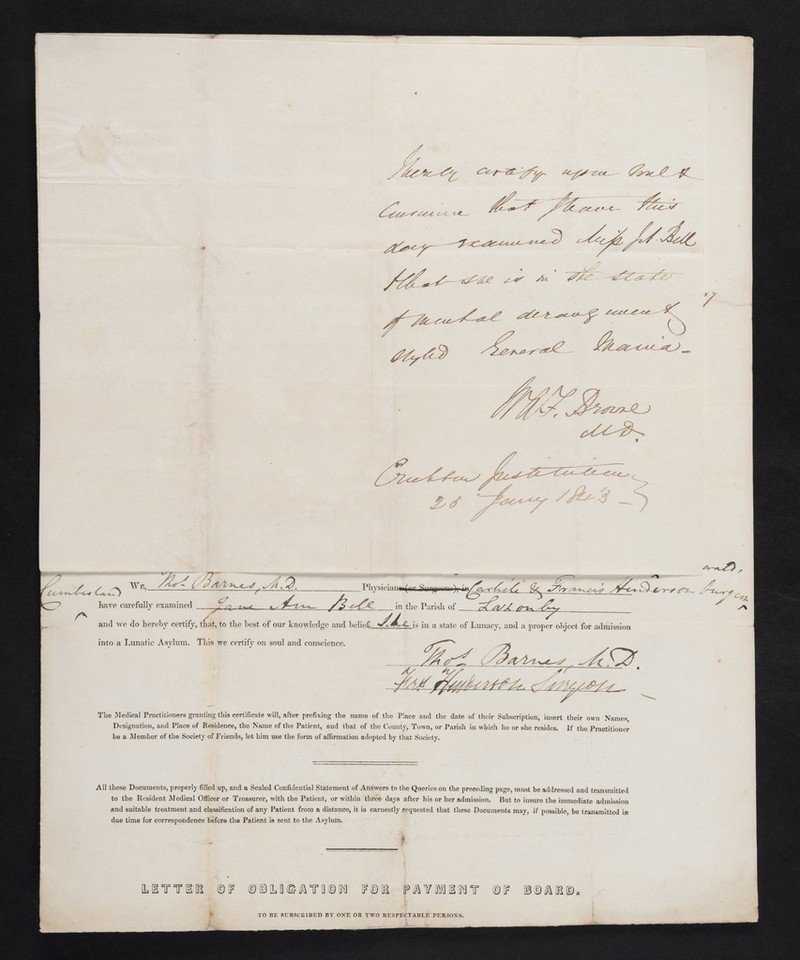 I hereby certify upon soul &
Conscience that I have this
day examined Miss J.A. Bell
& that she is in the state
of mental derangement
styled General Mania –
W.A.F. Browne
M.D.
Crichton Institution
28 Jany 1843 –
Cumberland We, Thos. Barnes, M.D. Physicians (or Surgeons), in Carlisle & Francis Henderson Surgeon
have carefully examined Jane Ann Bell in the Parish of Lazonby
and we do hereby certify, that, to the best of our knowledge and belief, She is in a state of Lunacy, and a proper object for admission
into a Lunatic Asylum. This we certify on soul and conscience.
Thos. Barnes, M.D.
Frs. Henderson Surgeon
The Medical Practitioners granting this certificate will, after prefixing the name of the Place and the date of their Subscription, insert their own Names,
Designation, and Place of Residence, the Name of the Patient, and that of the County, Town, or Parish in which he or she resides. If the Practitioner
be a Member of the Society of Friends, let him use the form of affirmation adopted by that Society.
All these Documents, properly filled up, and a Sealed Confidential Statement of Answers to the Queries on the preceding page, must be addressed and transmitted
to the Resident Medical Officer or Treasurer, with the Patient, or within three days after his or her admission. But to insure the immediate admission
and suitable treatment and classification of any Patient from a distance, it is earnestly requested that these Documents may, if possible, be transmitted in
due time for correspondence before the Patient is sent to the Asylum.
LETTER OF OBLIGATION FOR PAYMENT OF BOARD.
TO BE SUBSCRIBED BY ONE OR TWO RESPECTABLE PERSONS.